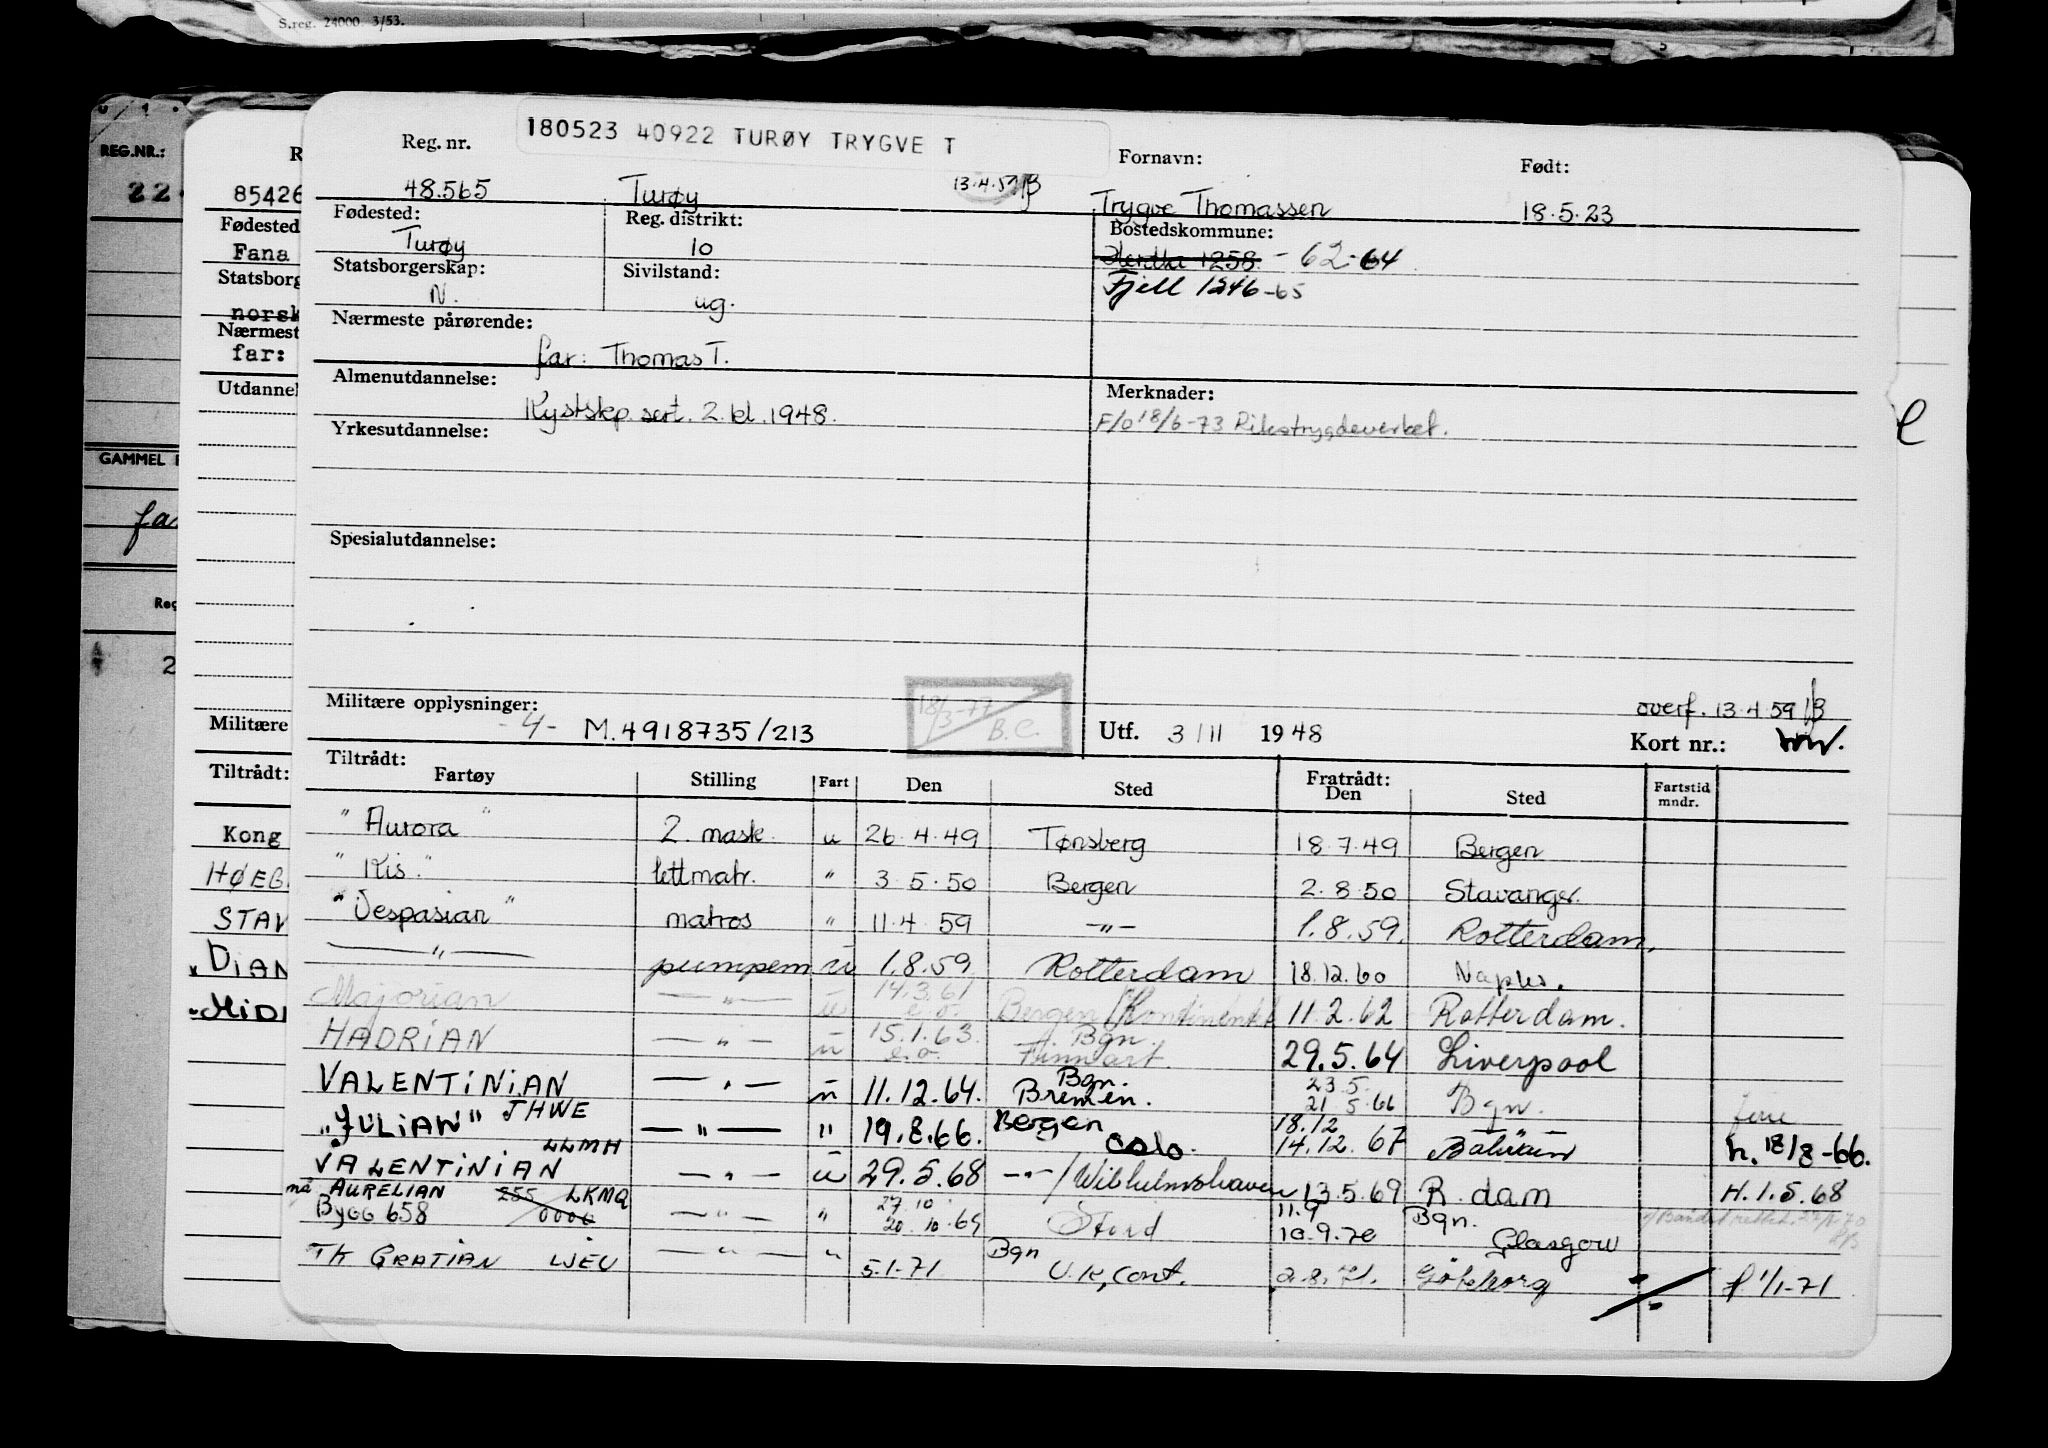 S.reg. 24000 3/53.
180523 40922 TURØY TRYGVE T
REG.NR.:
Reg. nr.
Fornavn:
Født:
22
85426
48.565
Turøy
13.4.59
Trygve Thomassen
18.5.23
Fødested
Fana
Fødested:
Turøy
Reg. distrikt:
10
Bostedskommune:
Herdla 1258 - 62-64
Fjell 1246-65
Statsborg
norsk
Statsborgerskap:
N.
Sivilstand:
ug.
Nærmest
far:
Nærmeste pårørende:
far: Thomas T.
Utdannel
Almenutdannelse:
Kystskp. sert. 2. kl. 1948.
Merknader:
F/o 18/6-73 Rikstrygdeverket.
Yrkesutdannelse:
GAMMEL
Spesialutdannelse:
Reg
2
Militære
Militære opplysninger:
-4- M.4918735/213
18/3-77
B.C.
Utf. 3/11 1948
overf. 13.4.59
Kort nr.:
Tiltrådt:
Tiltrådt:
Fratrådt:
Fartøy Stilling Fart Den Sted Den Sted Fartstid mndr.
Kong
"Aurora" 2. mask. u 26.4.49 Tønsberg 18.7.49 Bergen
HØEG
"Kis." lettmatr. " 3.5.50 Bergen 2.8.50 Stavanger.
STAV
"Vespasian" matros " 11.4.59 —"— 1.8.59. Rotterdam.
"DIAN
—"— pumpem u 1.8.59 Rotterdam 18.12.60 Naples.
"MID
Majorian —"— u 14.3.61 e.o. Bergen/Kontinentet 11.2.62 Rotterdam.
HADRIAN —"— u 15.1.63. e.o. Bgn. Finnart. 29.5.64 Liverpool
VALENTINIAN —"— u 11.12.64. Bgn. Bremen. 23.5. 21 5.66 Bgn. ferie
"JULIAN" JHWE —"— " 19.8.66. Bergen Oslo. 18.12 14.12.67 Bahrain h. 18/8-66.
VALENTINIAN LLMH —"— u 29.5.68 —"—/Wilhelmshaven 13.5.69 R.dam H.1.5.68
nå AURELIAN 255 LKMQ
Bygg 658 0000 —"— " 27.10 20.10.69 Stord 11.9 10.9.70 Bgn. Glasgow
TK GRATIAN LJEU —"— " 5.1.71 Bgn U.K, Cont. 2.8.71. Göteborg f 1/1-71